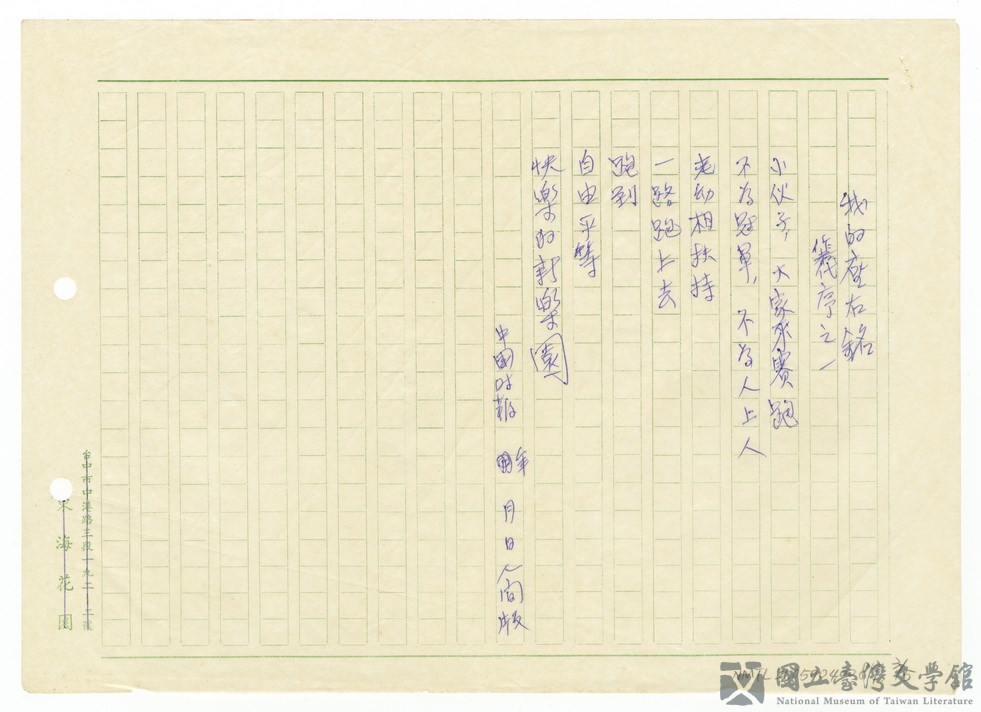 我的座右銘
代序之一
小伙子，大家來賽跑
不為冠軍，不為人上人
老幼相扶持
一路跑上去
跑到
自由平等
快樂的新樂園
中國时報 年 月 日人間版
台中市中港路三段一九二之二號
東海花園
國立臺灣文學館
National Museum of Taiwan Literature